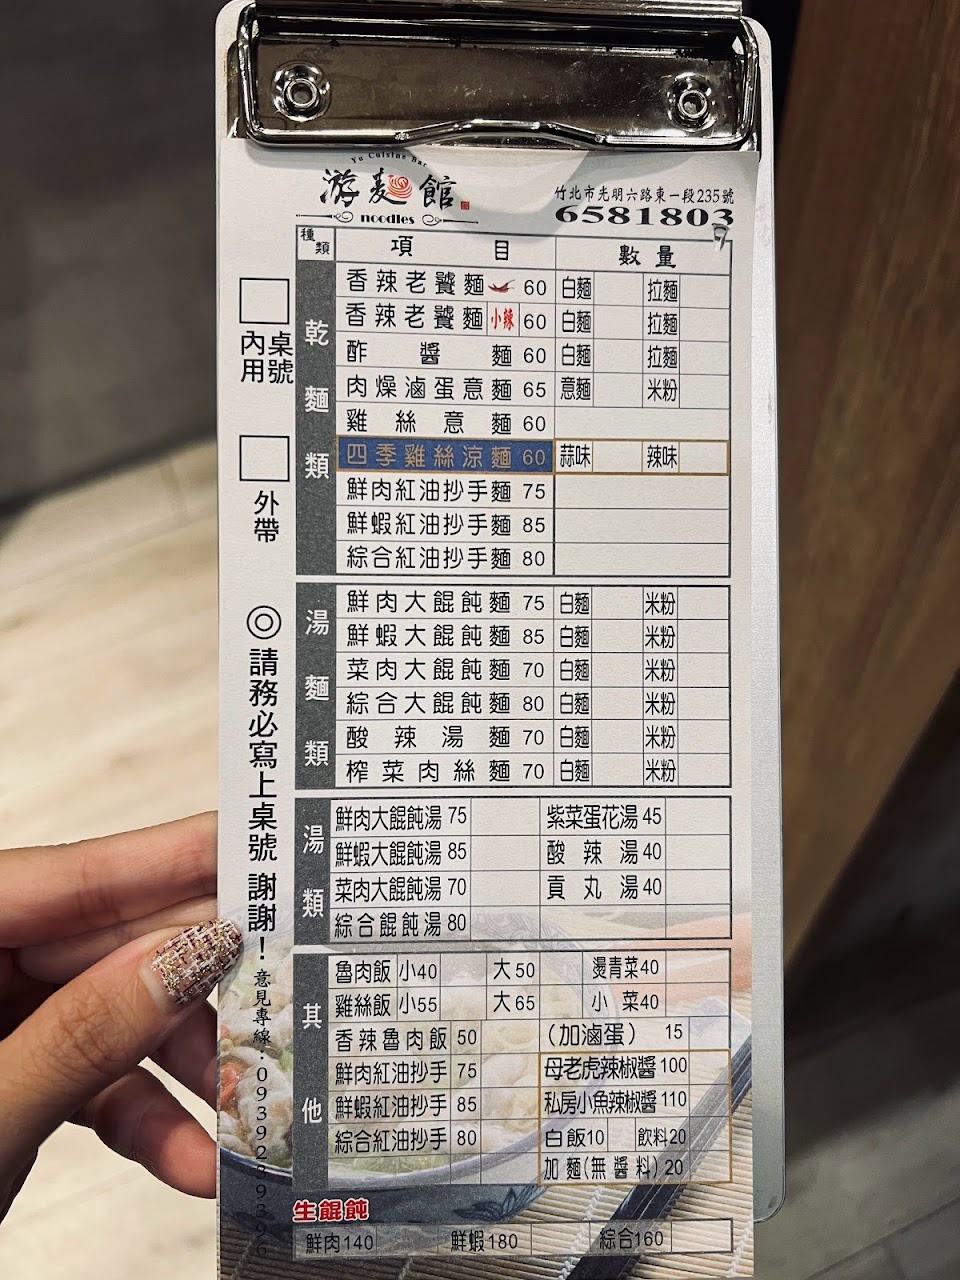 Yu Cuisine Bar
游麵館
noodles
竹北市光明六路東一段235號
6581803
種類 項目 數量
乾麵類
香辣老饕麵 60 白麵 拉麵
香辣老饕麵 小辣 60 白麵 拉麵
酢醬麵 60 白麵 拉麵
肉燥滷蛋意麵 65 意麵 米粉
雞絲意麵 60
四季雞絲涼麵 60 蒜味 辣味
鮮肉紅油抄手麵 75
鮮蝦紅油抄手麵 85
綜合紅油抄手麵 80
湯麵類
鮮肉大餛飩麵 75 白麵 米粉
鮮蝦大餛飩麵 85 白麵 米粉
菜肉大餛飩麵 70 白麵 米粉
綜合大餛飩麵 80 白麵 米粉
酸辣湯麵 70 白麵 米粉
榨菜肉絲麵 70 白麵 米粉
湯類
鮮肉大餛飩湯 75 紫菜蛋花湯 45
鮮蝦大餛飩湯 85 酸辣湯 40
菜肉大餛飩湯 70 貢丸湯 40
綜合餛飩湯 80
其他
魯肉飯 小40 大50 燙青菜40
雞絲飯 小55 大65 小菜40
香辣魯肉飯 50 （加滷蛋） 15
鮮肉紅油抄手 75 母老虎辣椒醬 100
鮮蝦紅油抄手 85 私房小魚辣椒醬 110
綜合紅油抄手 80 白飯10 飲料20
加麵(無醬料) 20
生餛飩
鮮肉140 鮮蝦180 綜合160
內用
桌號
外帶
◎請務必寫上桌號 謝謝！
意見專線：0939239396